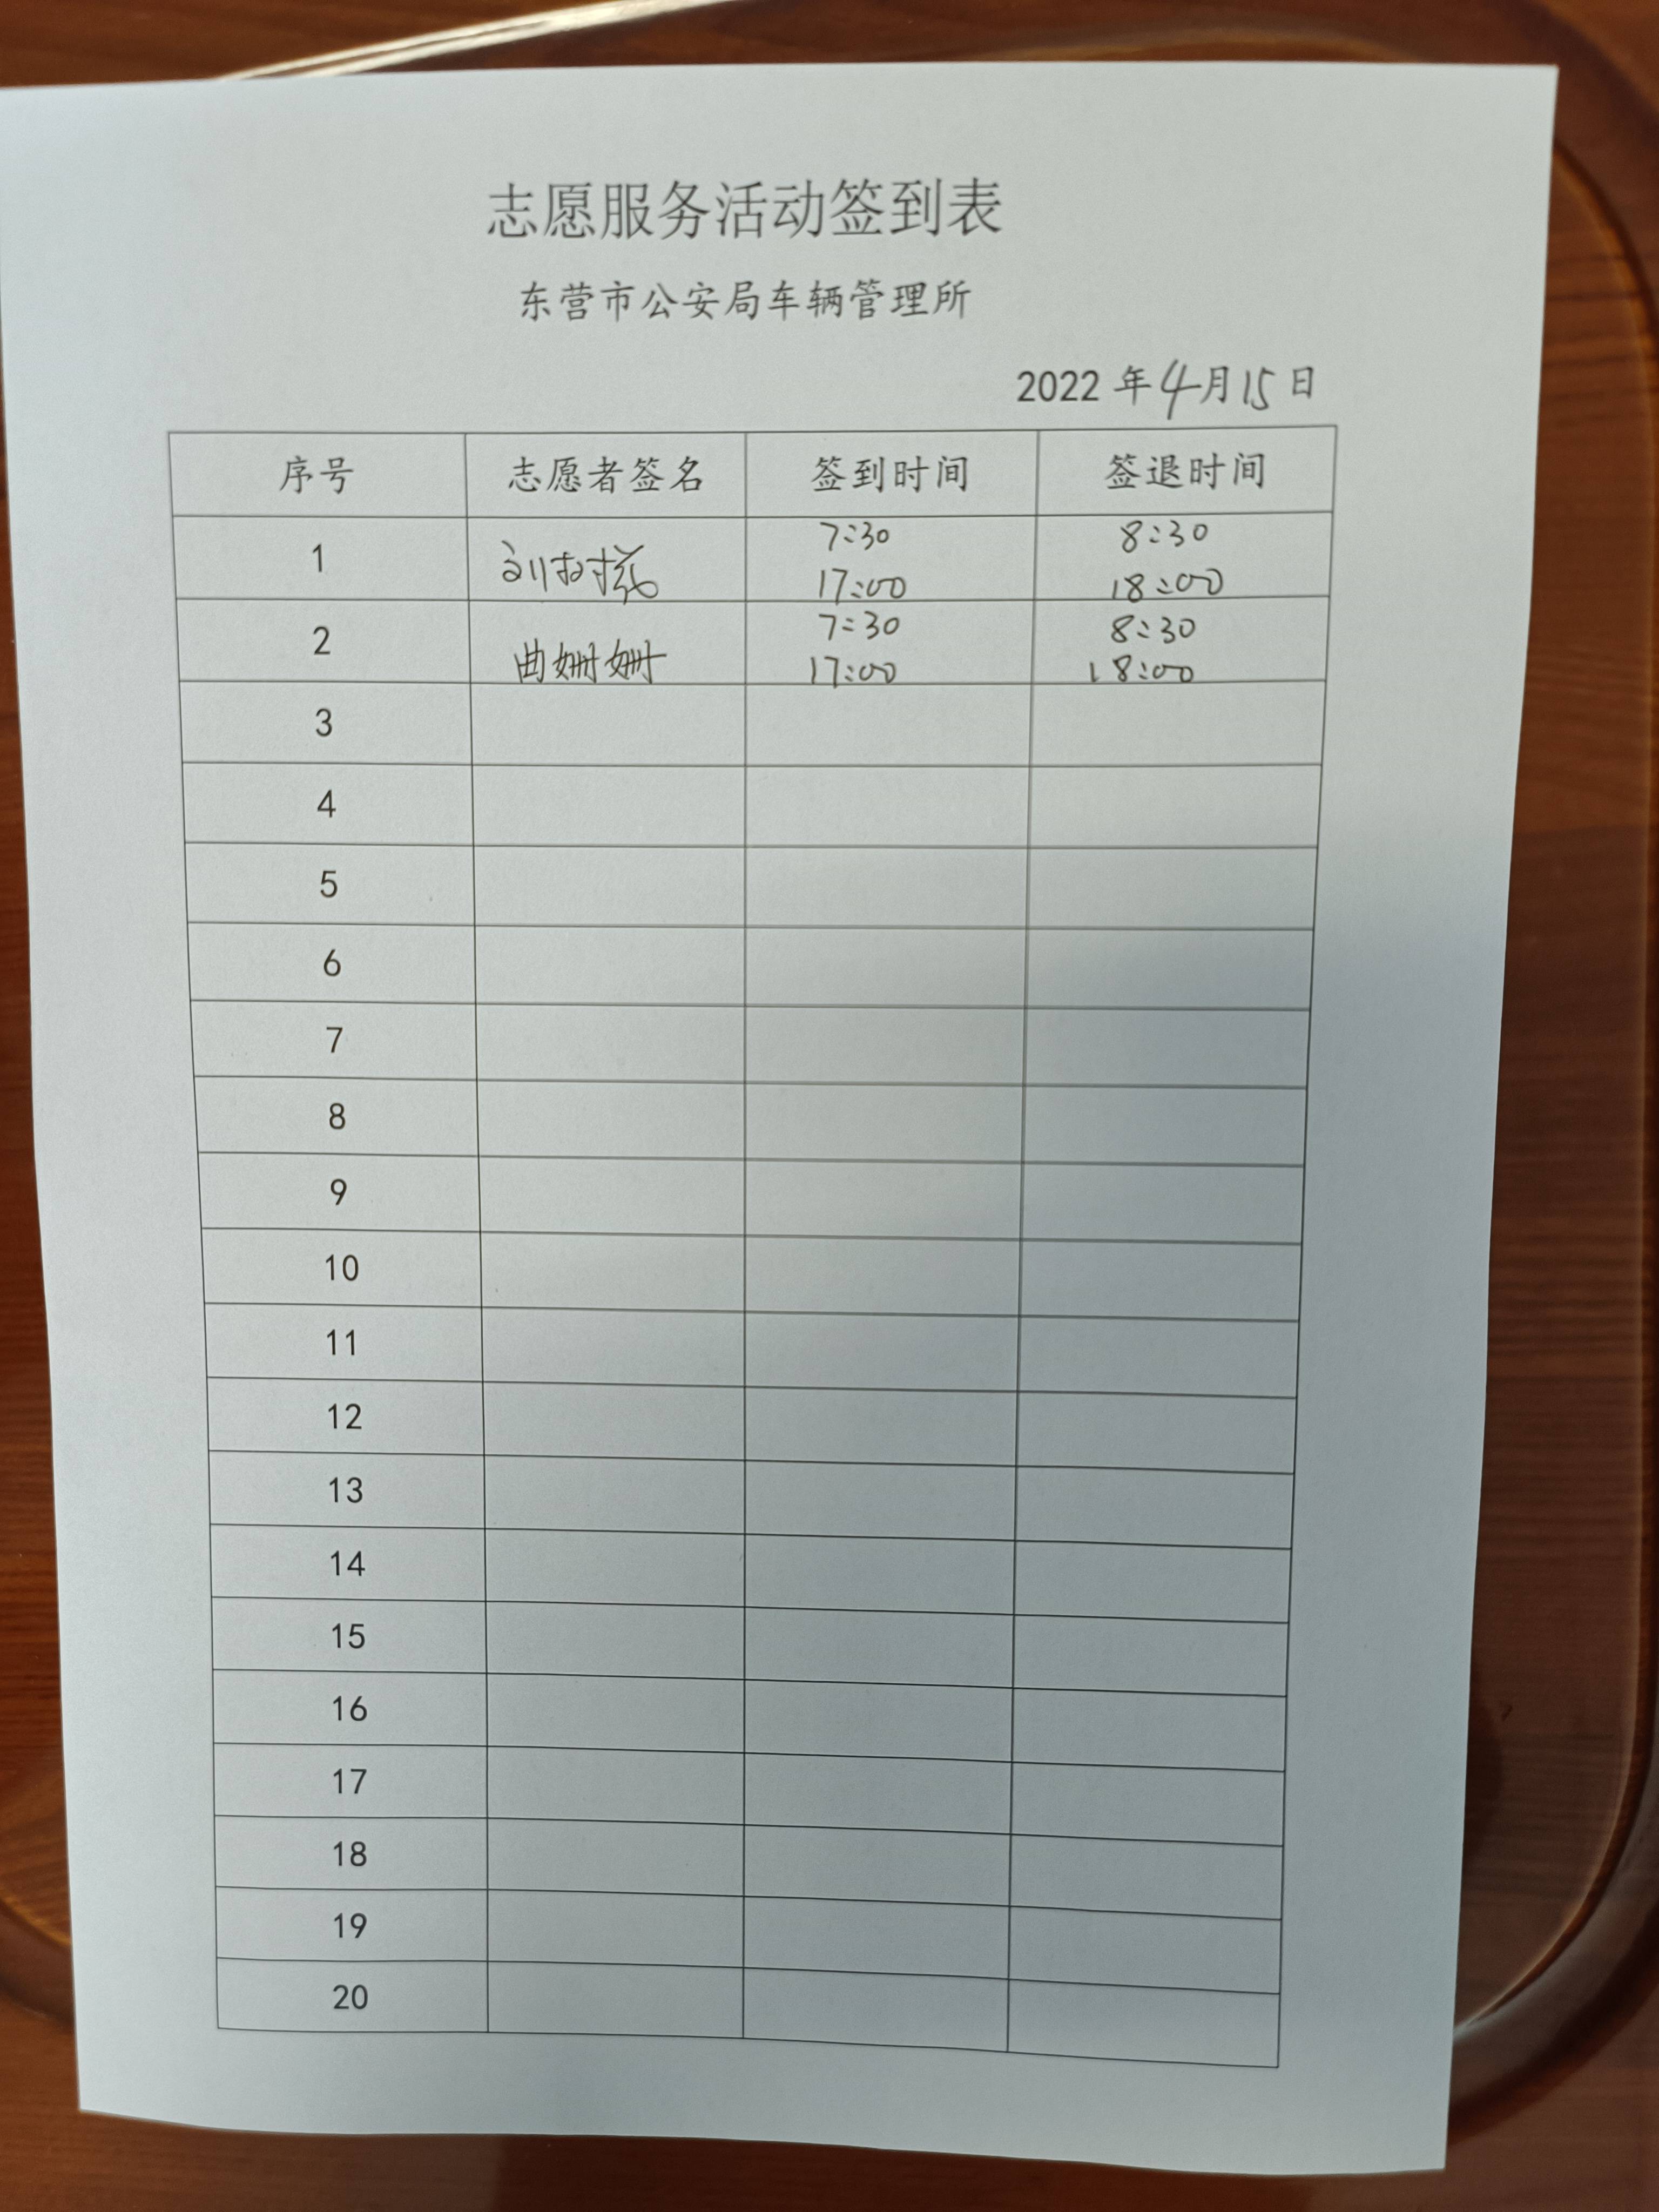 志愿服务活动签到表
东营市公安局车辆管理所
2022 年 4 月 15 日
序号 志愿者签名 签到时间 签退时间
1 7:30 8:30
17:00 18:00
2 曲姗姗 7:30 8:30
17:00 18:00
3
4
5
6
7
8
9
10
11
12
13
14
15
16
17
18
19
20